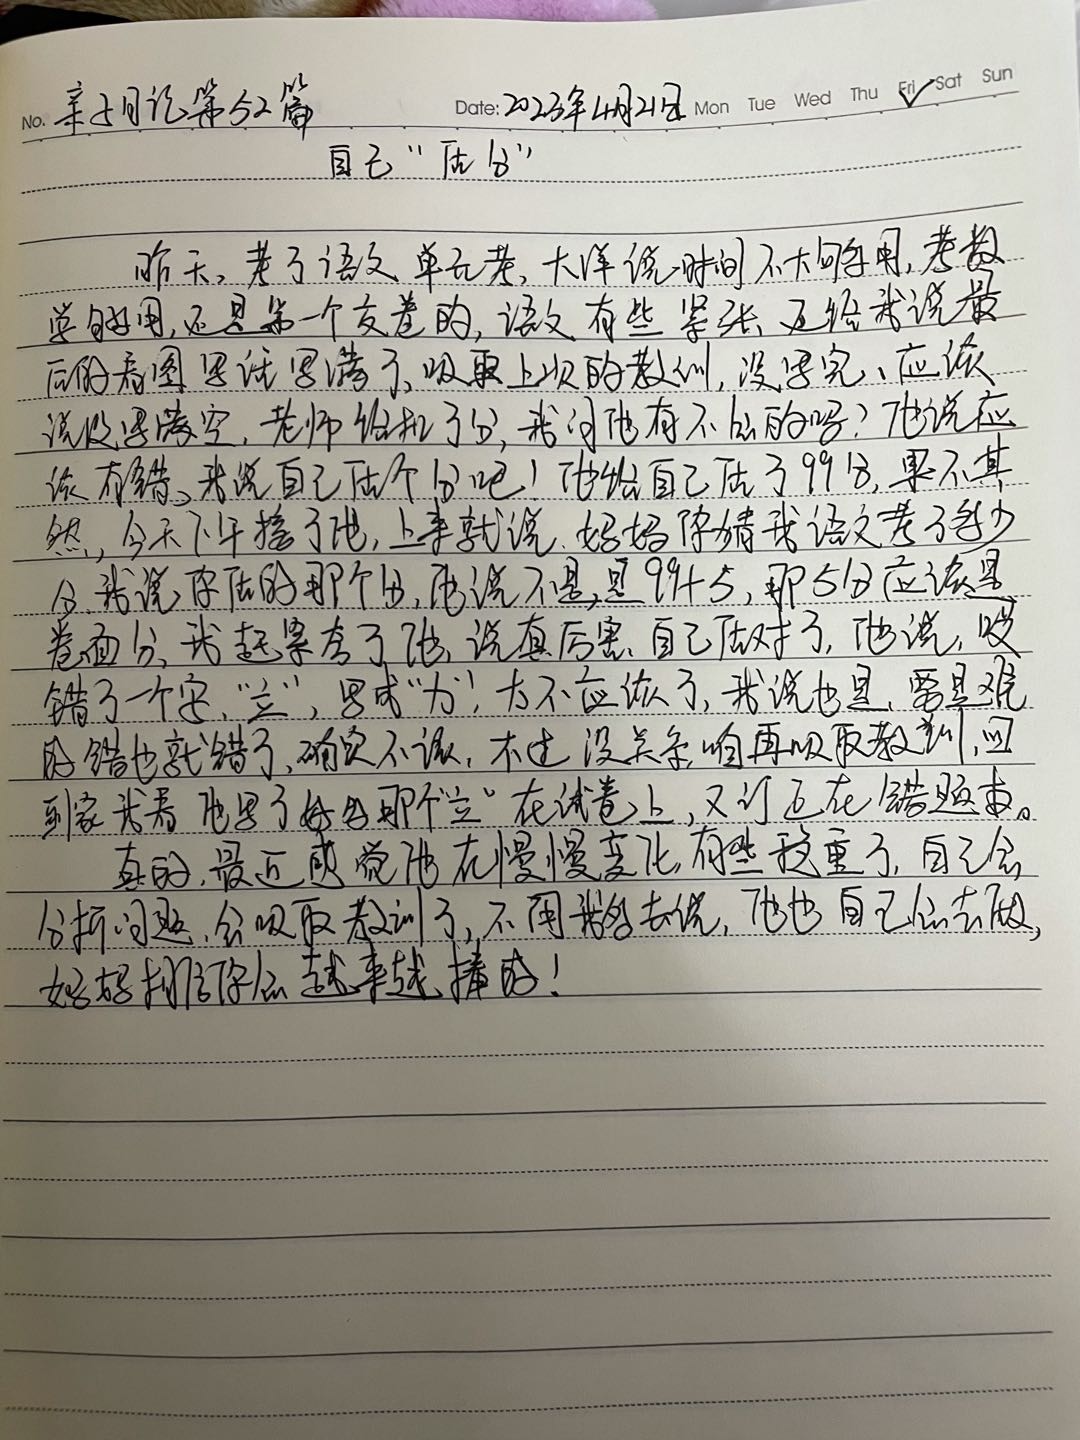 No. 亲子日记第52篇 Date: 2023年4月21日 Mon Tue Wed Thu Fri Sat Sun
自己“估分”
昨天，考了语文单元考，大洋说时间不大够用，考数
学够用，还是第一个交卷的，语文有些紧张，还给我说最
后的看图写话写满了，吸取上次的教训，没写完、应该
说没写满空，老师给扣了分，我问他有不会的吗？他说应
该有错，我说自己估个分吧！他给自己估了99分，果不其
然，今天下午接了他，上来就说，妈妈你猜我语文考了多少
分，我说你估的那个分，他说不是，是99+5，那5分应该是
卷面分，我赶紧夸了他，说真厉害，自己估对了，他说，唉
错了一个字，“立”，写成“力”，太不应该了，我说也是，要是难
的错也就错了，确实不该，不过没关系，咱再吸取教训，回
到家我看他写了好多那个“立”在试卷上，又订正在错题本。
真的，最近感觉他在慢慢变化，有些稳重了，自己会
分析问题，会吸取教训了，不用我多去说，他也自己会去做，
妈妈相信你会越来越棒的！